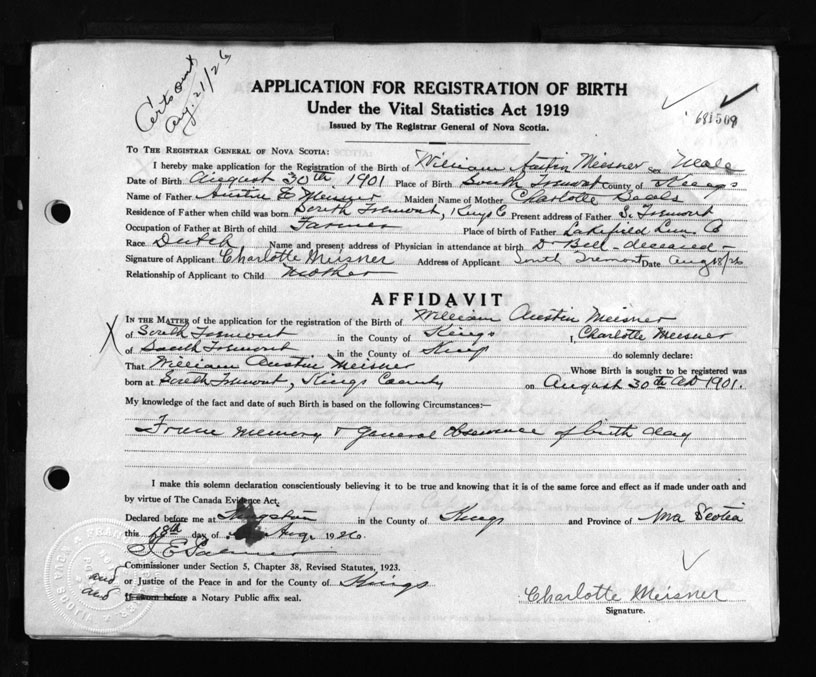 Cert sent
Aug. 21/26
APPLICATION FOR REGISTRATION OF BIRTH
Under the Vital Statistics Act 1919
Issued by The Registrar General of Nova Scotia.
681509
TO THE REGISTRAR GENERAL OF NOVA SCOTIA:
I hereby make application for the Registration of the Birth of William Austin Meisner Sex Male
Date of Birth August 30th, 1901 Place of Birth South Tremont County of Kings
Name of Father Austin E Meisner Maiden Name of Mother Charlotte Beals
Residence of Father when child was born South Tremont, Kings Co Present address of Father S. Tremont
Occupation of Father at Birth of child Farmer Place of birth of Father Lakefield Lun. Co
Race Dutch Name and present address of Physician in attendance at birth Dr Bell - deceased -
Signature of Applicant Charlotte Meisner Address of Applicant South Tremont Date Aug 18/26
Relationship of Applicant to Child Mother
AFFIDAVIT
IN THE MATTER of the application for the registration of the Birth of William Austin Meisner
X of South Tremont in the County of Kings I, Charlotte Meisner
of South Tremont in the County of Kings do solemnly declare:
That William Austin Meisner Whose Birth is sought to be registered was
born at South Tremont, Kings County on August 30th AD 1901.
My knowledge of the fact and date of such Birth is based on the following Circumstances:—
From memory & general observance of birth day
I make this solemn declaration conscientiously believing it to be true and knowing that it is of the same force and effect as if made under oath and
by virtue of The Canada Evidence Act.
Declared before me at Kingston in the County of Kings and Province of Nova Scotia
this 18th day of Aug. 1926.
Commissioner under Section 5, Chapter 38, Revised Statutes, 1923.
and or Justice of the Peace in and for the County of Kings
and If sworn before a Notary Public affix seal.
Charlotte Meisner
Signature.